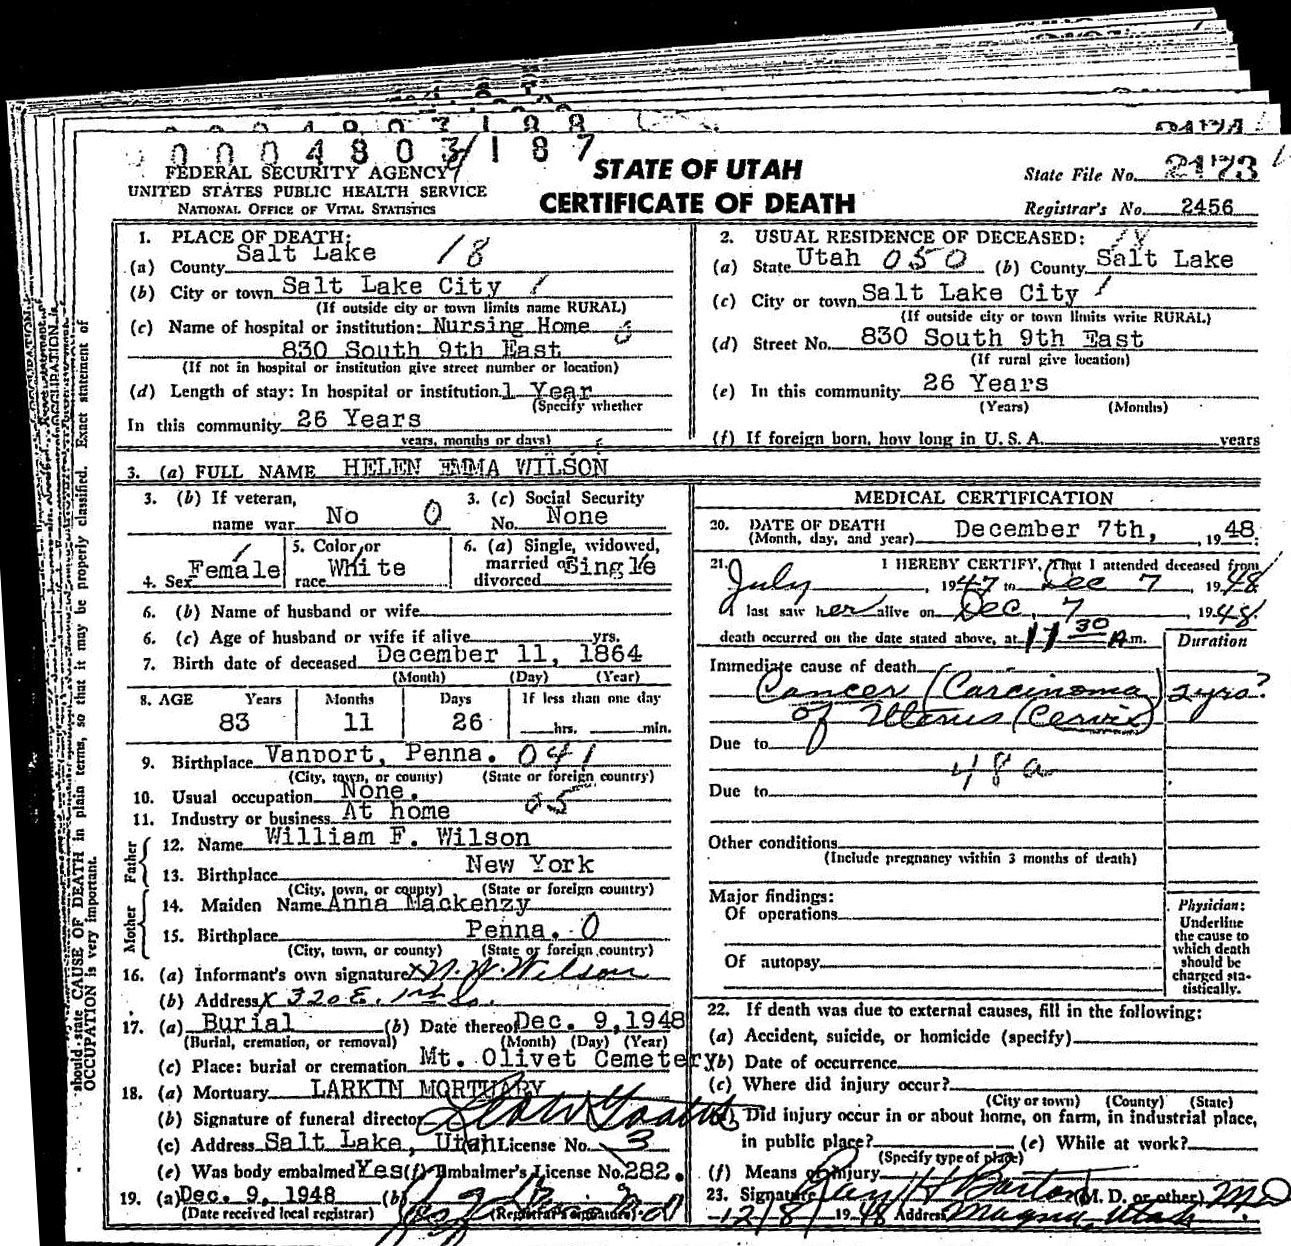 0004803187
FEDERAL SECURITY AGENCY
UNITED STATES PUBLIC HEALTH SERVICE
NATIONAL OFFICE OF VITAL STATISTICS
STATE OF UTAH
CERTIFICATE OF DEATH
State File No. 2173
Registrar's No. 2456
1. PLACE OF DEATH:
(a) County Salt Lake 18
(b) City or town Salt Lake City 1
(If outside city or town limits name RURAL)
(c) Name of hospital or institution: Nursing Home
830 South 9th East
(If not in hospital or institution give street number or location)
(d) Length of stay: In hospital or institution 1 Year
(Specify whether
In this community 26 Years
years, months or days)
2. USUAL RESIDENCE OF DECEASED: 18
(a) State Utah 050 (b) County Salt Lake
(c) City or town Salt Lake City 1
(If outside city or town limits write RURAL)
(d) Street No. 830 South 9th East
(If rural give location)
(e) In this community 26 Years
(Years) (Months)
(f) If foreign born, how long in U. S. A. years
3. (a) FULL NAME HELEN EMMA WILSON
3. (b) If veteran,
name war No 0
3. (c) Social Security
No. None
4. Sex Female
5. Color or
race White
6. (a) Single, widowed,
married or
divorced Single
6. (b) Name of husband or wife
6. (c) Age of husband or wife if alive yrs.
7. Birth date of deceased December 11, 1864
(Month) (Day) (Year)
8. AGE Years Months Days If less than one day
83 11 26 hrs. min.
9. Birthplace Vanport, Penna. 041
(City, town, or county) (State or foreign country)
10. Usual occupation None.
11. Industry or business At home 05
Father
12. Name William F. Wilson
13. Birthplace New York
(City, town, or county) (State or foreign country)
Mother
14. Maiden Name Anna Mackenzy
15. Birthplace Penna. 0
(City, town, or county) (State or foreign country)
16. (a) Informant's own signature Wilson
(b) Address x 320 E. 1st So.
17. (a) Burial (b) Date thereof Dec. 9, 1948
(Burial, cremation, or removal) (Month) (Day) (Year)
(c) Place: burial or cremation Mt. Olivet Cemetery
18. (a) Mortuary LARKIN MORTUARY
(b) Signature of funeral director
(c) Address Salt Lake, Utah (d) License No. 3
(e) Was body embalmed Yes (f) Embalmer's License No. 282.
19. (a) Dec. 9, 1948 (b)
(Date received local registrar) (Registrar's signature)
MEDICAL CERTIFICATION
20. DATE OF DEATH
(Month, day, and year) December 7th, , 1948.
21. I HEREBY CERTIFY, That I attended deceased from
July , 1947 to Dec 7 , 1948
I last saw her alive on Dec. 7 , 1948.
death occurred on the date stated above, at 11 30 A m.
Duration
Immediate cause of death
Cancer (Carcinoma) 2 yrs?
of Uterus (Cervix)
Due to
48a
Due to
Other conditions
(Include pregnancy within 3 months of death)
Major findings:
Of operations
Of autopsy
Physician:
Underline
the cause to
which death
should be
charged sta-
tistically.
22. If death was due to external causes, fill in the following:
(a) Accident, suicide, or homicide (specify)
(b) Date of occurrence
(c) Where did injury occur?
(City or town) (County) (State)
(d) Did injury occur in or about home, on farm, in industrial place,
in public place? (e) While at work?
(Specify type of place)
(f) Means of injury
23. Signature H Barton (M. D. or other) M.D.
12/8/ 1948 Address Magna, Utah
should state CAUSE OF DEATH in plain terms, so that it may be properly classified. Exact statement of
OCCUPATION is very important.